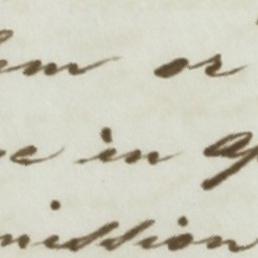 em or
e in ap
mission